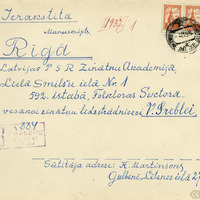 Ierakstīta
Manuscripts.
1937/1
Rīgā
Latvijas PSR Zinātņu Akadēmija,
Lielā Smilšu ielā No 1
592. istabā, Folkloras Sectora
vecanai zinātņu līdzstrādniecei V. Greblei
R
884
Sūtītāja adrese: K. Martinsons,
Gulbenē, Litenes ielā 27